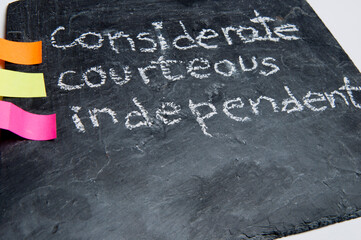 considerate
courteous
independent